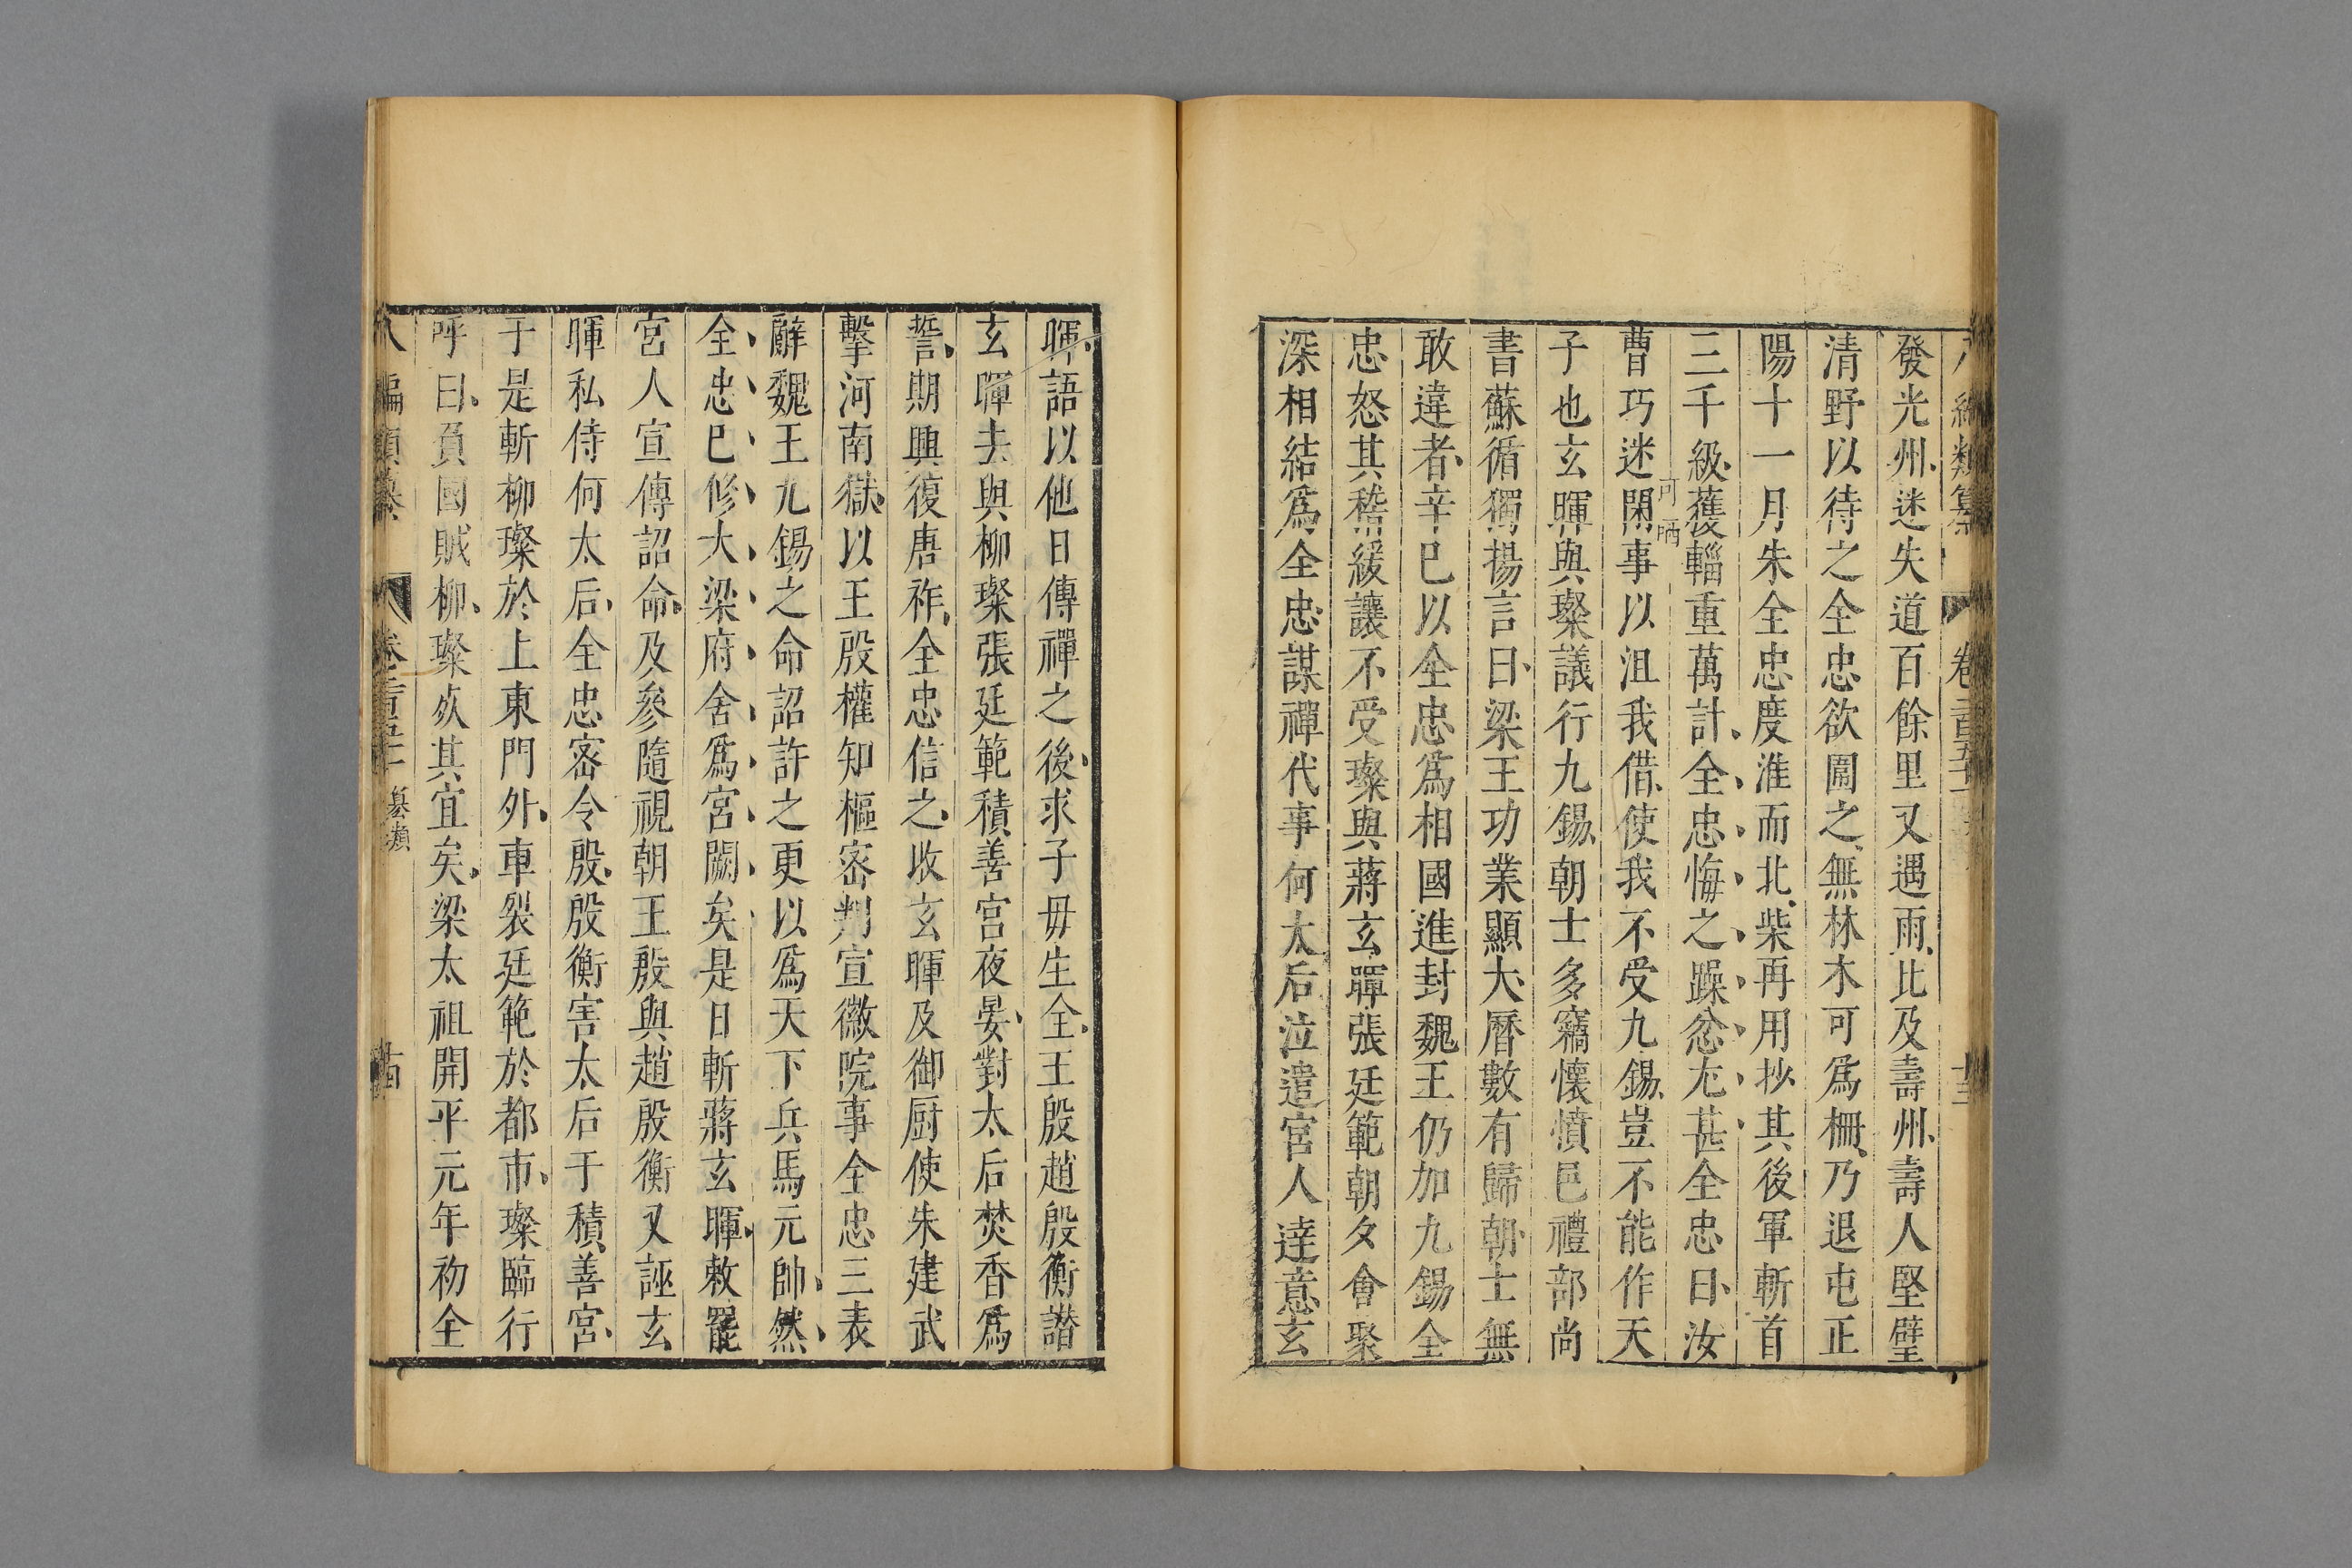 發光州迷失道百餘里又遇雨比及壽州壽人堅壁
清野以待之全忠欲圍之無林木可爲柵乃退屯正
陽十一月朱全忠度淮而北柴再用抄其後軍斬首
三千級獲輜重萬計全忠悔之躁忿尤甚全忠曰汝
可哂
曹巧迷閑事以沮我借使我不受九錫豈不能作天
子也玄暉與璨議行九錫朝士多竊懷憤邑禮部尚
書蘇循獨揚言曰梁王功業顯大曆數有歸朝士無
敢違者辛巳以全忠爲相國進封魏王仍加九錫全
忠怒其稽緩讓不受璨與蔣玄暉張廷範朝夕會聚
深相結爲全忠謀禪代事何太后泣遣宮人達意玄
暉語以他日傳禪之後求子毋生全王殷趙殷衡譖
玄暉去與柳璨張廷範積善宮夜宴對太后焚香爲
誓期興復唐祚全忠信之收玄暉及御厨使朱建武
擊河南獄以王殷權知樞密判宣徽院事全忠三表
辭魏王九錫之命詔許之更以爲天下兵馬元帥然
全忠巳修大梁府舍爲宮闕矣是日斬蔣玄暉敕罷
宮人宣傳詔命及參隨視朝王殷與趙殷衡又誣玄
暉私侍何太后全忠密令殷殷衡害太后于積善宮
于是斬柳璨於上東門外車裂廷範於都市璨臨行
呼曰負國賊柳璨死其宜矣梁太祖開平元年初全
八編類纂
纂類
十四